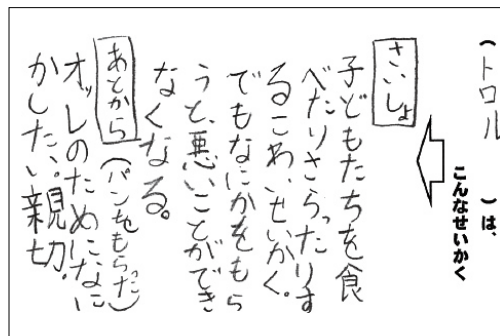 （トロル　　）は、
こんなせいかく
さいしょ
子どもたちを食
べたりさらったりす
るこわいせいかく。
でもなにかをもら
うと、悪いことができ
なくなる。
あとから（パンをもらった）
オッレのためになに
かしたい。親切。